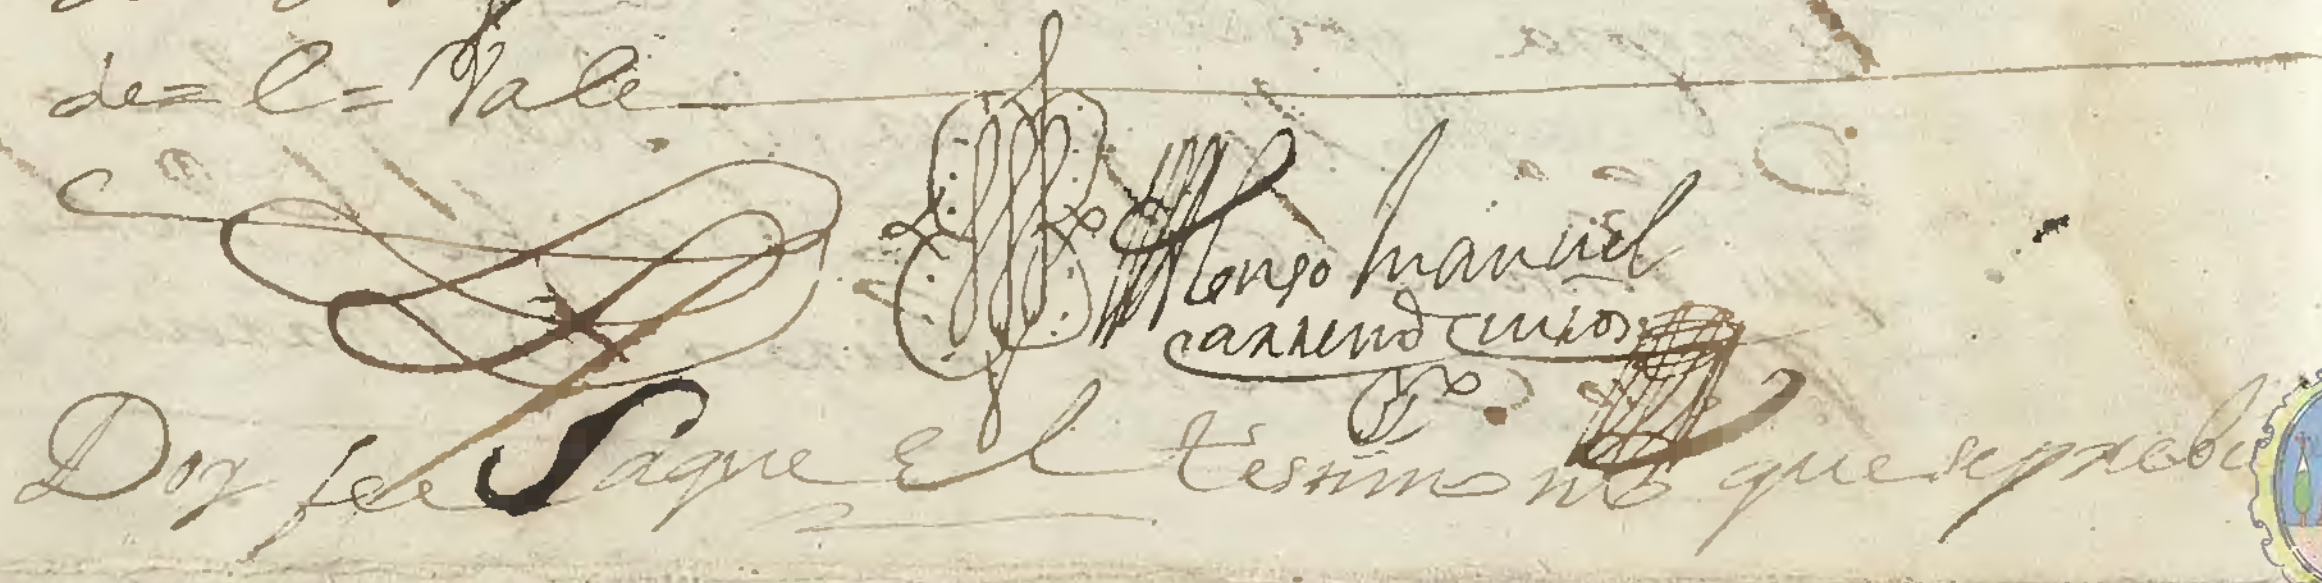 de = l = Vale
Alonso Manuel
Carreño
Doy fee Saque El testimonio que se